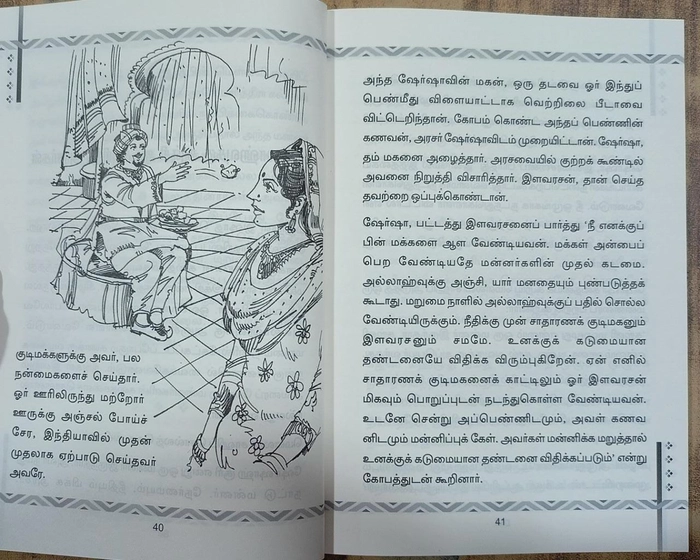 குடிமக்களுக்கு அவர், பல
நன்மைகளைச் செய்தார்.
ஓர் ஊரிலிருந்து மற்றோர்
ஊருக்கு அஞ்சல் போய்ச்
சேர, இந்தியாவில் முதன்
முதலாக ஏற்பாடு செய்தவர்
அவரே.
40
அந்த ஷேர்ஷாவின் மகன், ஒரு தடவை ஓர் இந்துப்
பெண்மீது விளையாட்டாக வெற்றிலை பீடாவை
விட்டெறிந்தான். கோபம் கொண்ட அந்தப் பெண்ணின்
கணவன், அரசர் ஷேர்ஷாவிடம் முறையிட்டான். ஷேர்ஷா,
தம் மகனை அழைத்தார். அரசவையில் குற்றக் கூண்டில்
அவனை நிறுத்தி விசாரித்தார். இளவரசன், தான் செய்த
தவற்றை ஒப்புக்கொண்டான்.
ஷேர்ஷா, பட்டத்து இளவரசனைப் பார்த்து 'நீ எனக்குப்
பின் மக்களை ஆள வேண்டியவன். மக்கள் அன்பைப்
பெற வேண்டியதே மன்னர்களின் முதல் கடமை.
அல்லாஹ்வுக்கு அஞ்சி, யார் மனதையும் புண்படுத்தக்
கூடாது. மறுமை நாளில் அல்லாஹ்வுக்குப் பதில் சொல்ல
வேண்டியிருக்கும். நீதிக்கு முன் சாதாரணக் குடிமகனும்
இளவரசனும் சமமே. உனக்குக் கடுமையான
தண்டனையே விதிக்க விரும்புகிறேன். ஏன் எனில்
சாதாரணக் குடிமகனைக் காட்டிலும் ஓர் இளவரசன்
மிகவும் பொறுப்புடன் நடந்துகொள்ள வேண்டியவன்.
உடனே சென்று அப்பெண்ணிடமும், அவள் கணவ
னிடமும் மன்னிப்புக் கேள். அவர்கள் மன்னிக்க மறுத்தால்
உனக்குக் கடுமையான தண்டனை விதிக்கப்படும்' என்று
கோபத்துடன் கூறினார்.
41